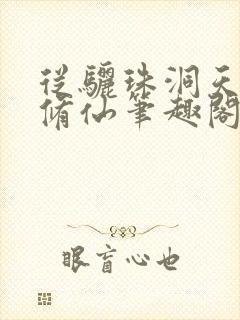 從驪珠洞天
脩仙筆趣閣
眼盲心也